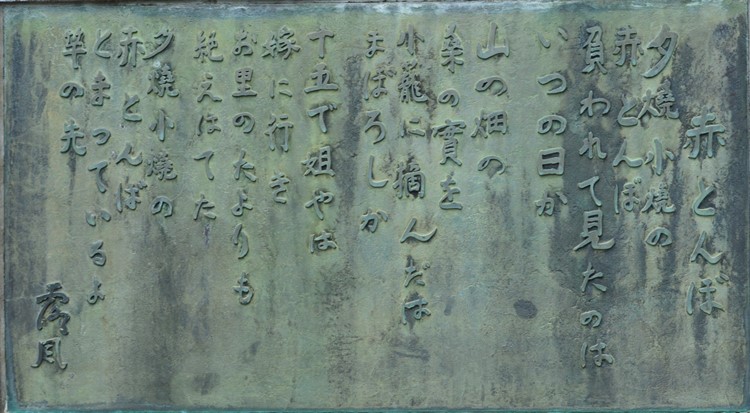 赤とんぼ
夕燒小燒の
赤とんぼ
負われて見たのは
いつの日か
山の畑の
桑の實を
小籠に摘んだは
まぼろしか
十五で姐やは
嫁に行き
お里のたよりも
絶えはてた
夕燒小燒の
赤とんぼ
とまっているよ
竿の先
露風